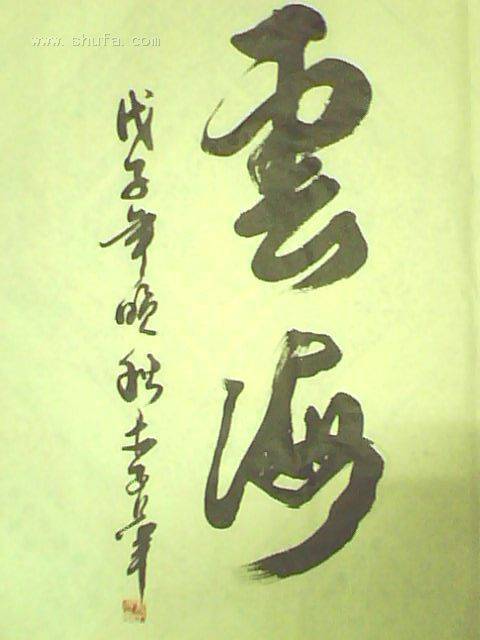 www.shufa.com
雲海
戊子年晚秋